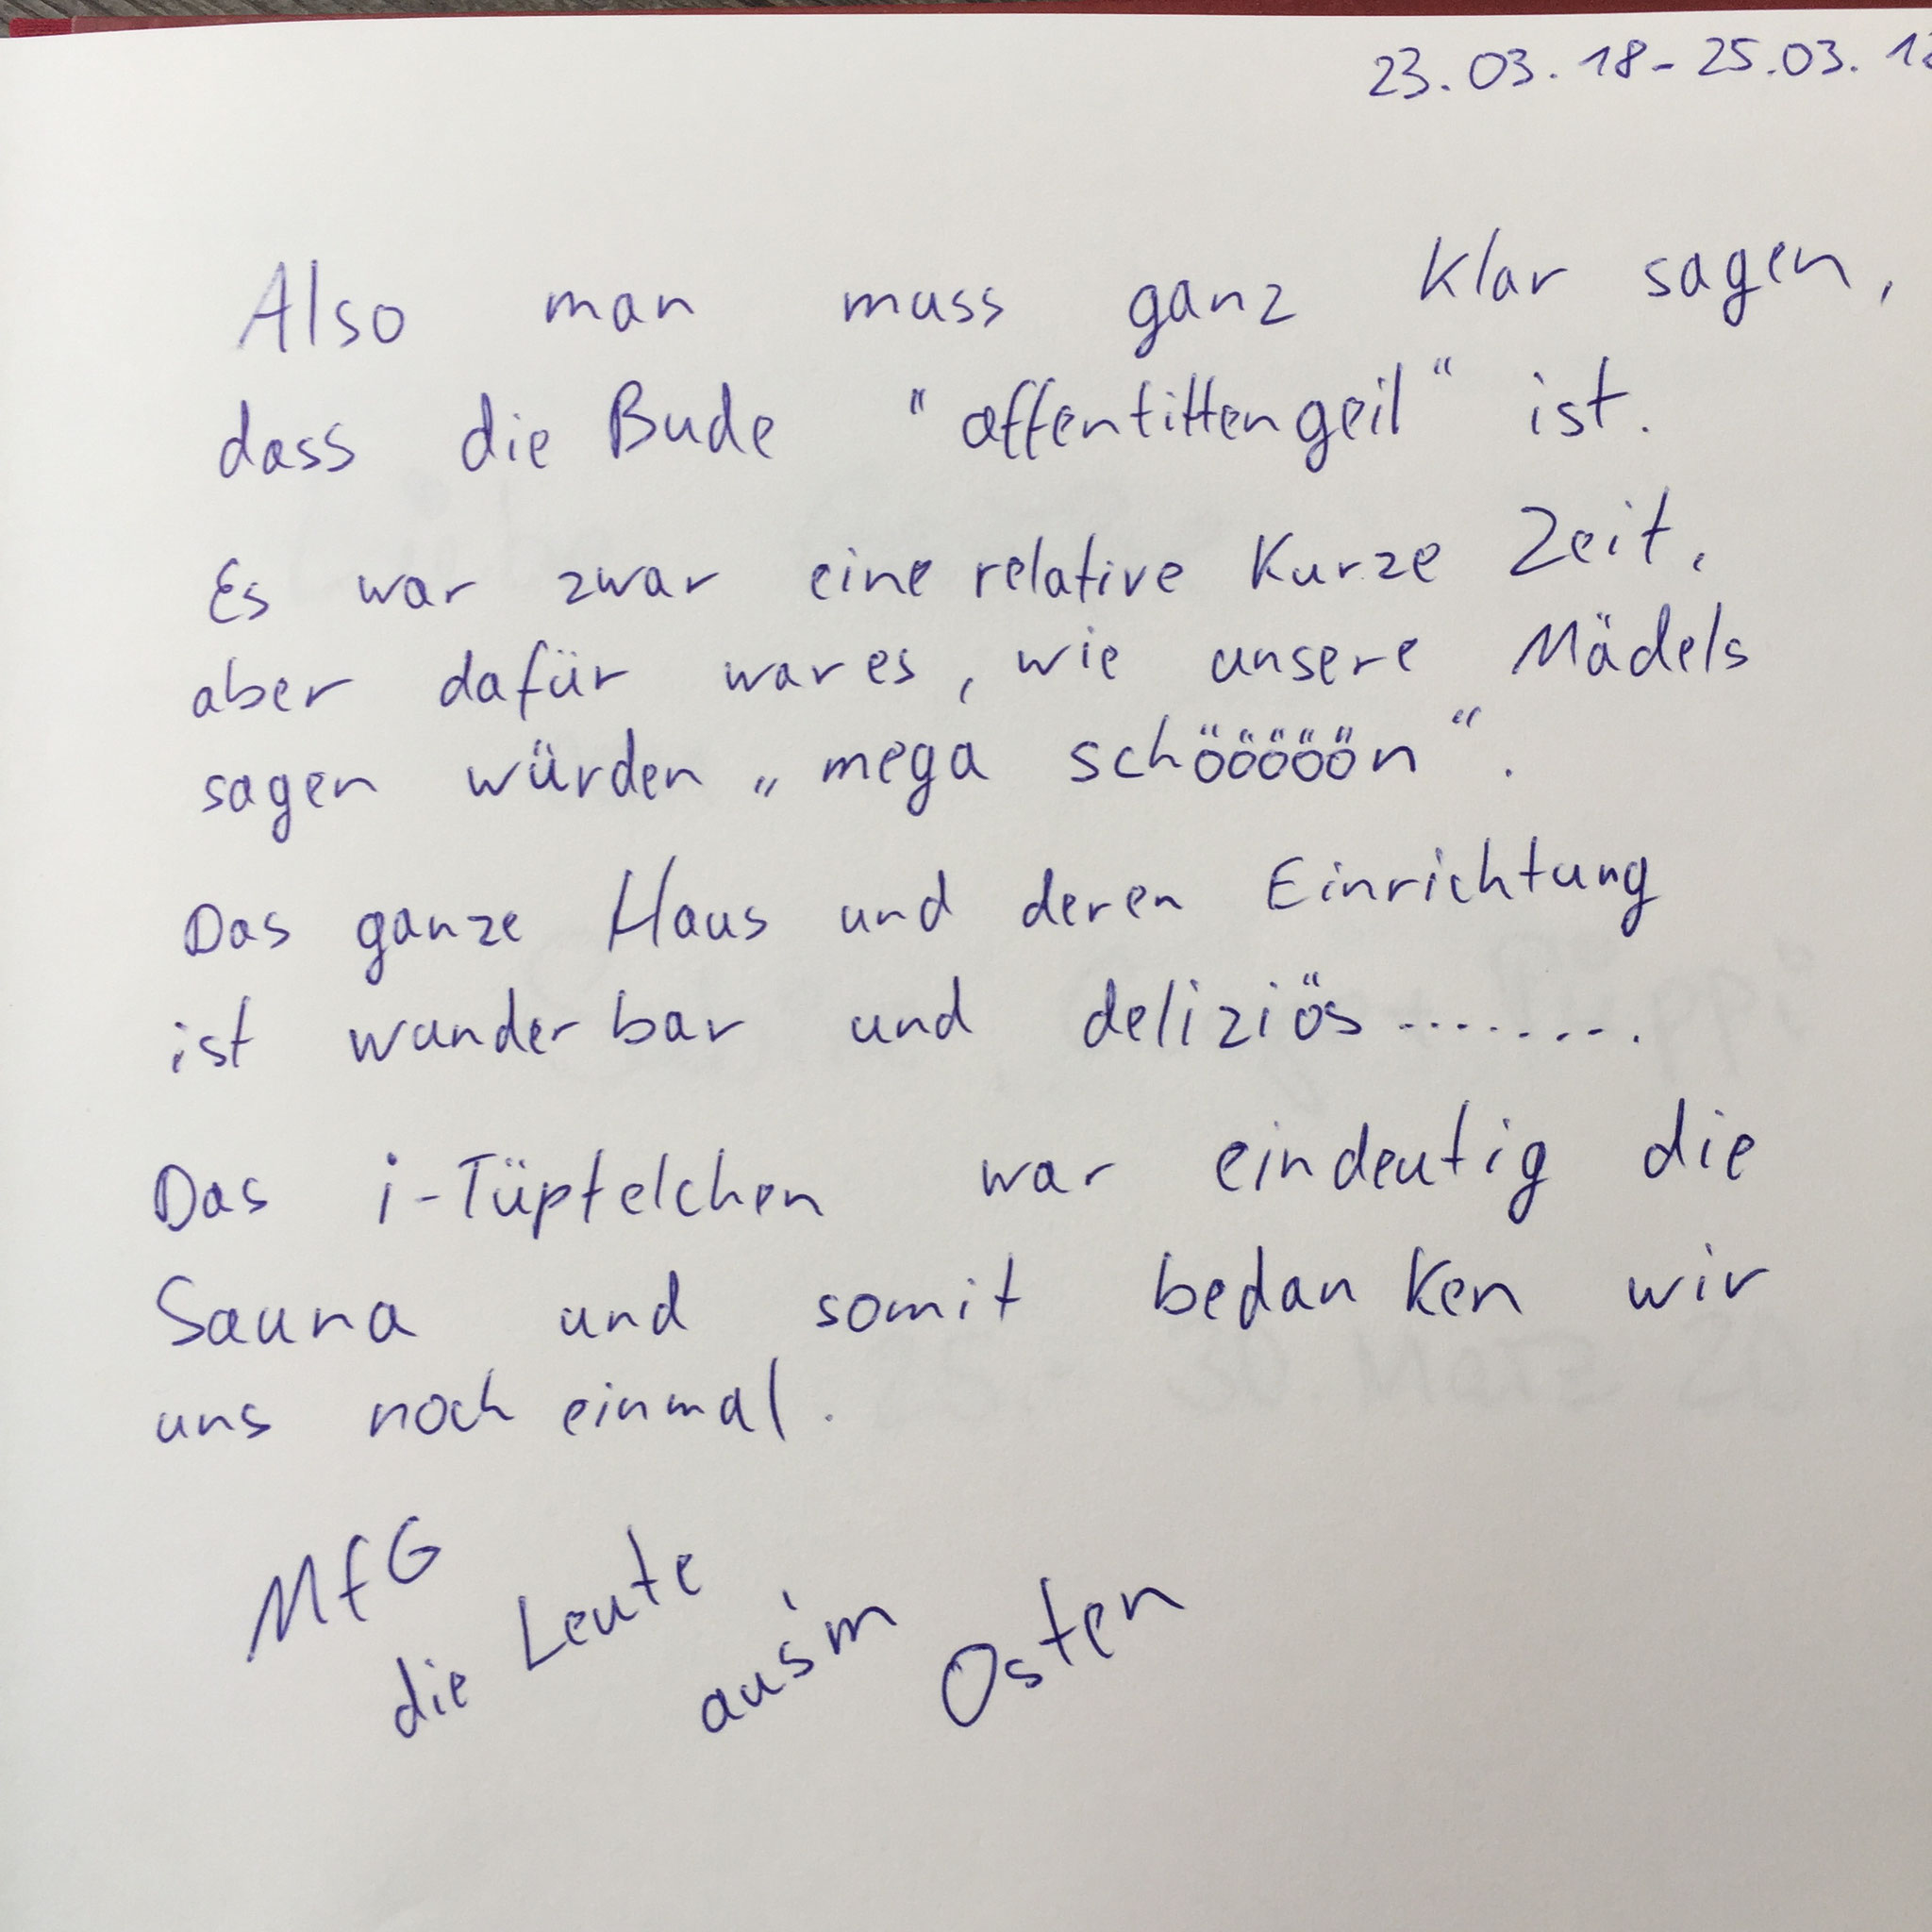 23.03.18-25.03.18
Also man muss ganz klar sagen,
dass die Bude "affentittengeil" ist.
Es war zwar eine relative kurze Zeit,
aber dafür war es, wie unsere Mädels
sagen würden „mega schööööön“.
Das ganze Haus und deren Einrichtung
ist wunderbar und deliziös.........
Das i-Tüpfelchen war eindeutig die
Sauna und somit bedanken wir
uns noch einmal.
MfG
die Leute aus'm Osten